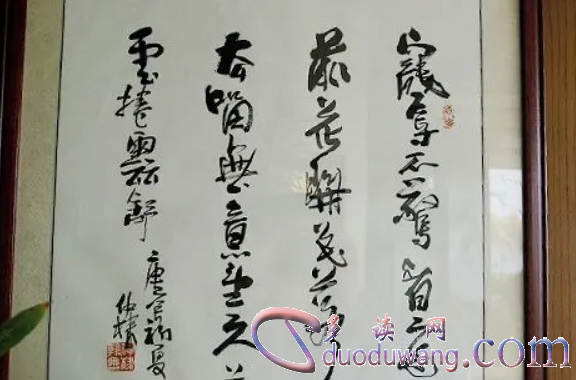 寵辱不驚看庭
前花開花落
去留無意望天
雲捲雲舒 庚寅初夏
多读网
duoduwang.com